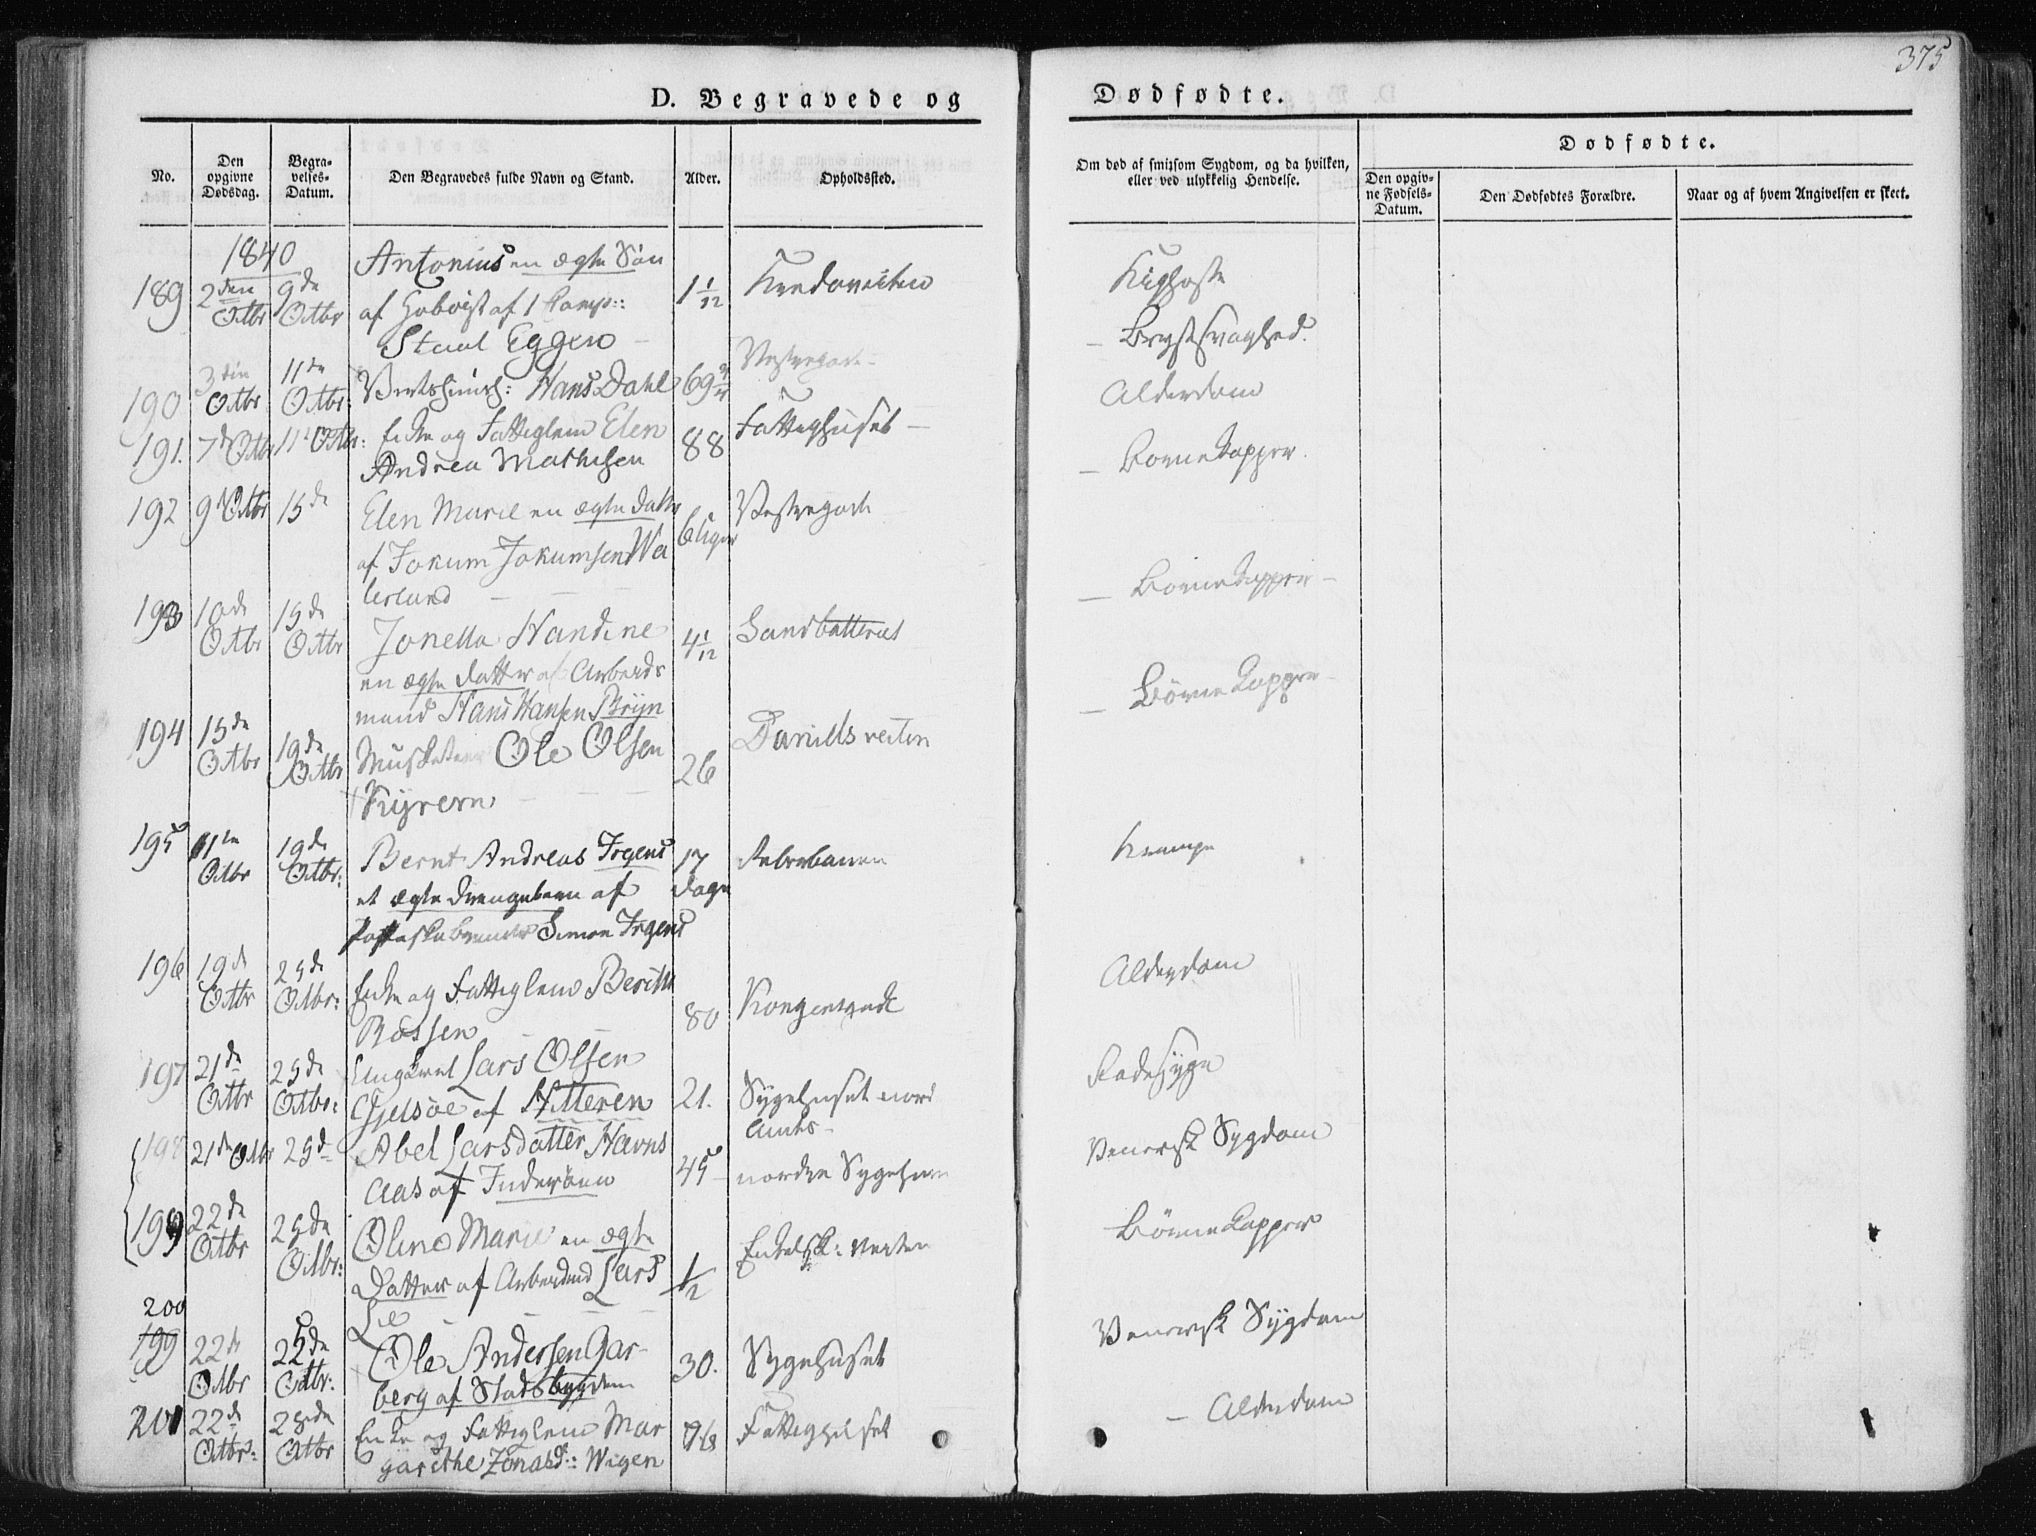 375
D. Begravede og Dødfødte.
No.
Den opgivne Dødsdag.
Begravelses-Datum.
Den Begravedes fulde Navn og Stand.
Alder.
Opholdssted.
Om død af smitsom Sygdom, og da hvilken, eller ved ulykkelig Hendelse.
Dødfødte.
Den opgivne Fødsels-Datum.
Den Dødfødtes Forældre.
Naar og af hvem Angivelsen er skeet.
1840
189 2den Octbr 9de Octbr Antonius en ægte Søn 1 1/12
af Hoboist af 1 Comp::
Staal Eggen
Kighoste
190 3die Octbr 11te Octbr: Hans Dahl 69
Vestregade
Brystsvaghed.
191. 7de Octbr 11te Octbr: Enke og Fattiglem Elen 88 Fattighuset
Andrea Mathisen
Alderdom
192 9de Octbr 15de Elen Marie en ægte Datter Vestregade
af Jokum Jokumsen
Børnekopper.
193 10de Octbr 15de Octbr Jonella Handine 4 1/12 Sandbatteriet
en ægte Datter af Arbeids
mand Hans Hansen Bryn
Børnekopper
194 15de Octbr 19de Octbr Musketeer Ole Olsen 26 Danielsveiten
Kyrem
Børnekopper
195 11te Octbr 19de Octbr: Bernt Andreas Irgens 17 Dage
et ægte Drengebarn af
Simon Irgens
Krampe
196 19de Octbr 25de Octbr: Enke og Fattiglem Berith 80 Kongensgade
Rossen
Alderdom
197 21de Octbr 25de Octbr: Ungkarl Lars Olsen 21. Sygehuset nord
Gjelsøe af Hitteren
Amts
Radesyge
198 21de Octbr 25de Abel Larsdatter Havns 45 nordre Sygehuus
Aas af Inderøen
Venerisk Sygdom
199 22de Octbr 25de Octbr: Oline Marie en ægte 1/2 Enkelsk: Veiten
Datter af Arbeidsmd Lars
Lie
Børnekopper
200
199 22de Octbr 25de Octbr: Ole Andersen Gar- 30. Sygehuset
berg af Stadsbygden
Venerisk Sygdom
201 22de Octbr: 28de Octbr Enke og Fattiglem Mar 76 Fattighuset
garethe Jonasd:: Wigen
Alderdom